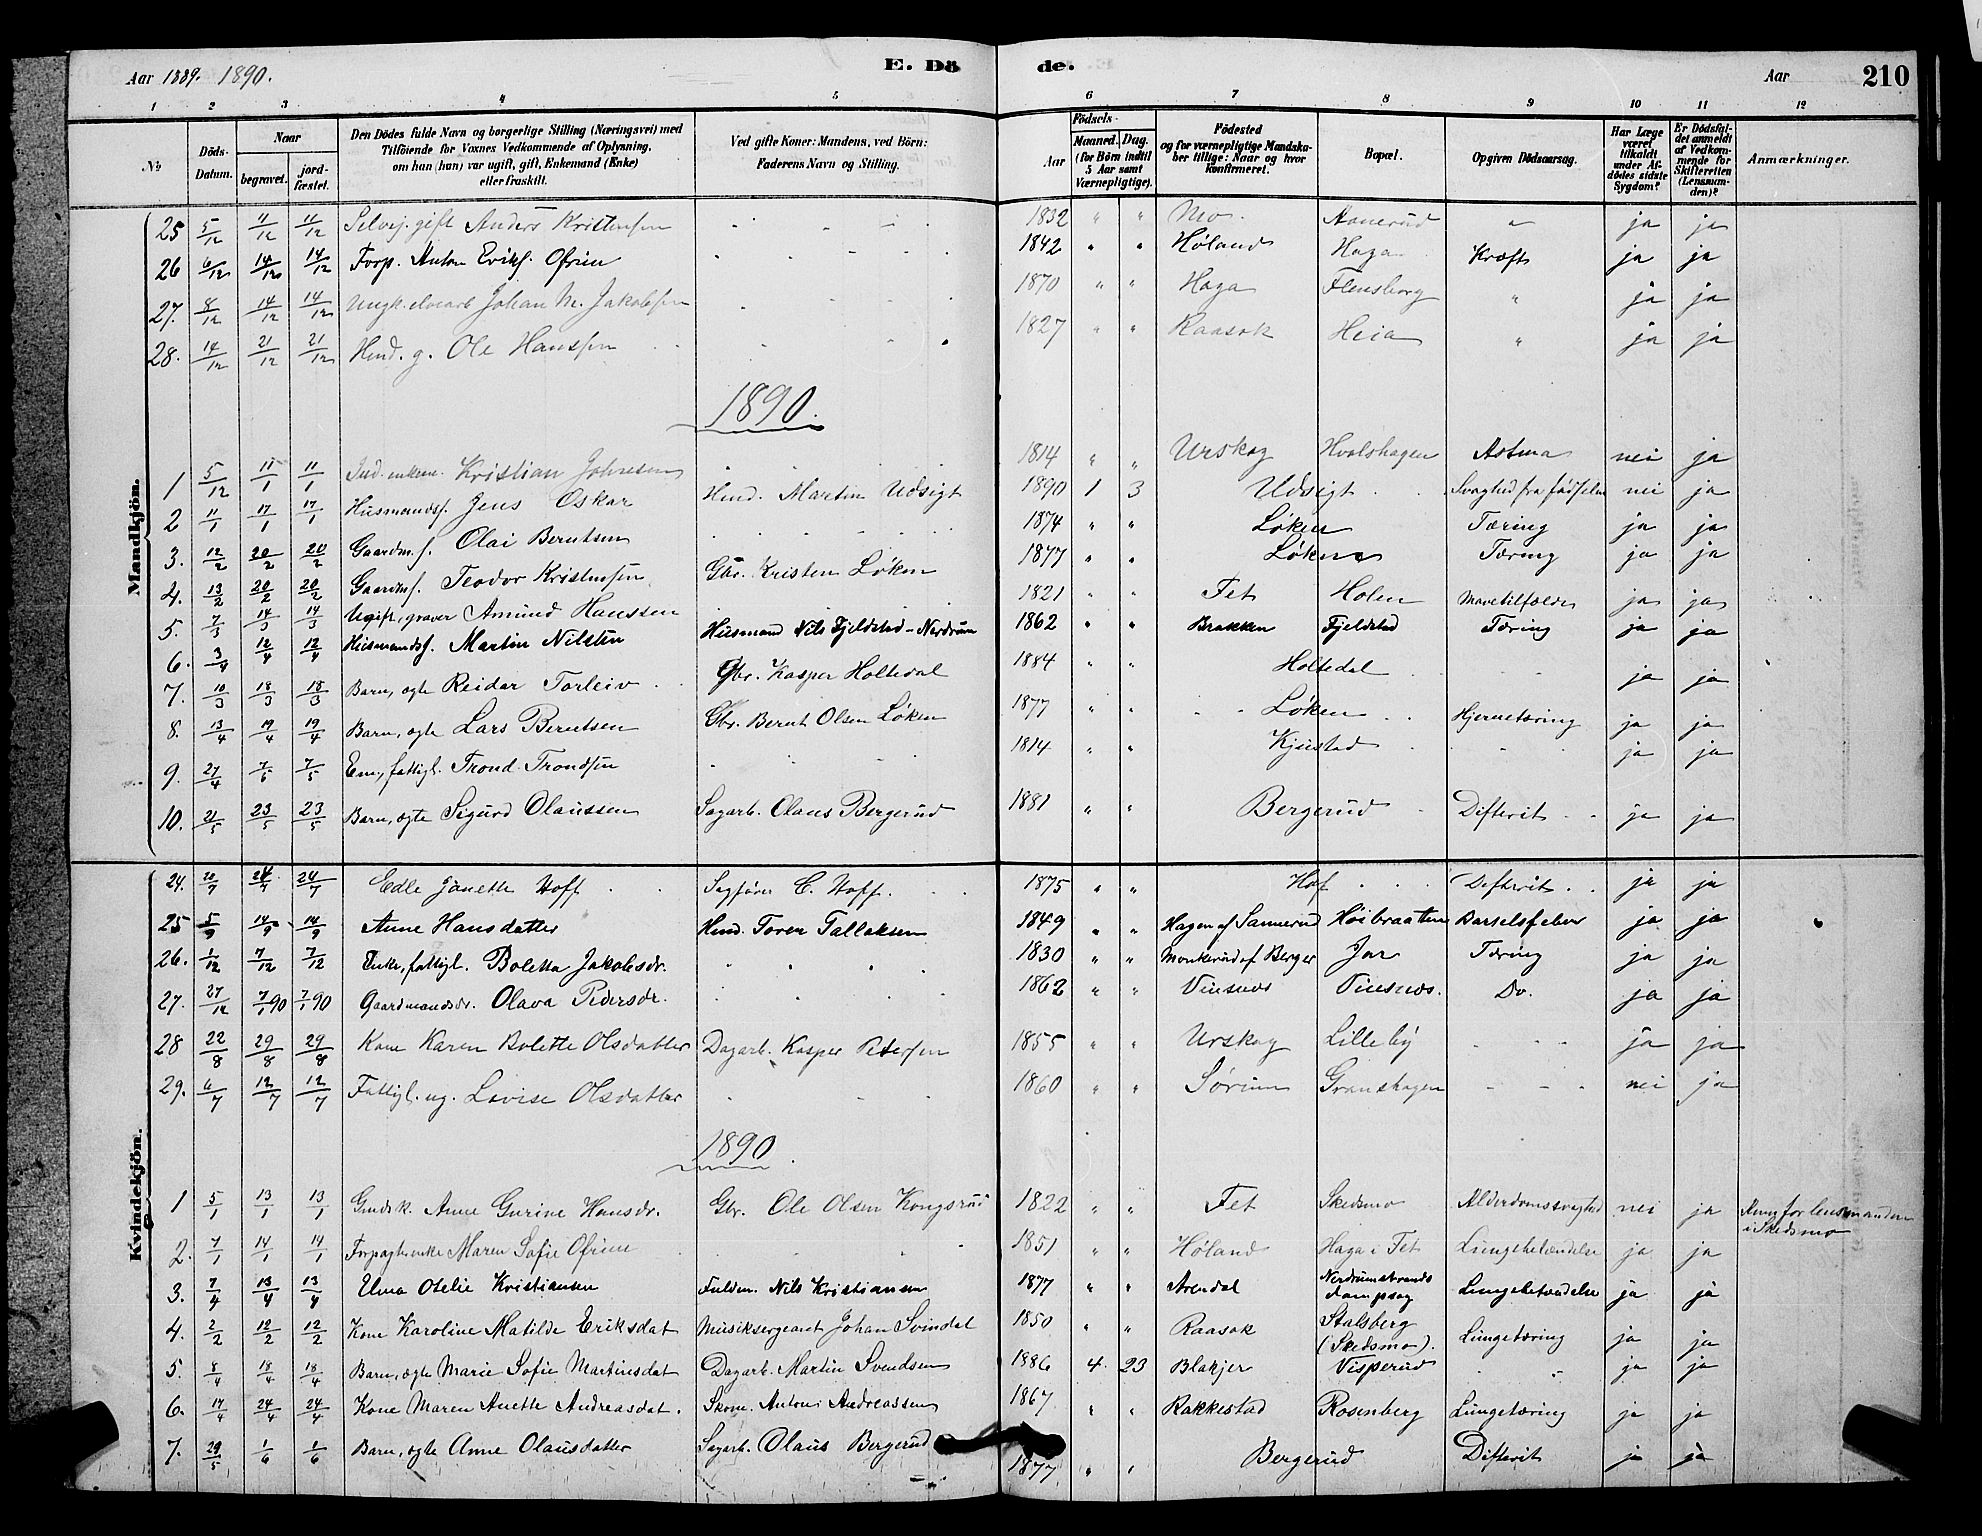 Aar 1889. 1890. E. Dö de. Aar 210
1 2 3 4 5 6 7 8 9 10 11 12
No Döds-Datum. Naar begravet. jord-fæstet. Den Dödes fulde Navn og borgerlige Stilling (Næringsvei) med Tilföiende for Voxnes Vedkommende af Oplysning, om han (hun) var ugift, gift, Enkemand (Enke) eller fraskilt. Ved gifte Koner: Mandens, ved Börn: Faderens Navn og Stilling. Födsels- Aar Maaned. Dag. (for Börn indtil 5 Aar samt Værnepligtige). Födested og for værnepligtige Mandska-ber tillige: Naar og hvor konfirmeret. Bopæl. Opgiven Dödsaarsag. Har Læge været tilkaldt under Af-dödes sidste Sygdom? Er Dödsfal-det anmeldt af Vedkom-mende for Skifteretten (Lensman-den)? Anmærkninger.
Mandkjön.
25 5/12 11/12 11/12 Selvej. gift Anders Kristensen 1832 " " Mo Aanerud " ja ja
26 6/12 14/12 14/12 Forp. Anton Eriks. Ofrim 1842 " " Høland Haga Kræft ja ja
27. 8/12 14/12 14/12 Ungk. Johan M. Jakobsen 1870 " " Haga Flensborg " ja ja
28. 14/12 21/12 21/12 Hmd. g. Ole Hanssen 1827 " " Raasok Heia " ja ja
1890.
1 5/12 11/1 11/1 Ind. enkem. Kristian Johnsen 1814 " " Urskog Hvalshagen Astma nei ja
2 11/1 17/1 17/1 Husmands. Jens Oskar Hmd. Martin Udsigt 1890 1 3 Udsigt Svaghed fra fødselen nei ja
3. 12/2 20/2 20/2 Gaardm.s. Olai Berntsen 1874 " " Løken Tæring ja ja
4. 13/2 20/2 20/2 Gaardm.s. Teodor Kristensen Gbr. Kristen Løken 1877 " " Løken Tæring ja ja
5. 7/3 14/3 14/3 Ugift, graver Amund Hanssen 1821 " " Fet Holen Mavetilfælde ja ja
6. 3/4 12/4 12/4 Husmands. Martin Nilsen Husmand Nils Fjeldstad - Nerdrum 1862 " " Brakken Fjeldstad Tæring ja ja
7. 10/3 18/3 18/3 Barn, ægte Reidar Torleiv Gbr. Kasper Holtedal 1884 " " Holtedal ja ja
8. 13/4 19/4 19/4 Barn, ægte Lars Berntsen Gbr. Bernt Olsen Løken 1877 " " Løken Hjernetæring ja ja
9. 27/4 7/6 7/5 Em., fattigl. Trond Trondsen 1814 " " Kjustad ja ja
10. 21/5 23/5 23/5 Barn, ægte Sigurd Olaussen Sagarb. Olaus Bergerud 1881 " " Bergerud Difterit ja ja
Kvindekjön.
24. 20/7 24/7 24/7 Edle Janette Hoff Sagfører C. Hoff 1875 " " Hof Difterit ja ja
25 5/9 14/9 14/9 Anne Hansdatter Hmd. Torer Tallaksen 1849 " " Hagen af Sannerud Høibraaten Barselsfeber ja ja
26. 1/12 7/12 7/12 Enke, fattigl. Boletta Jakobsdr. 1830 " " Monkerud af Berger Jar Tæring ja ja
27. 27/12 7/1 90 7/1 90 Gaardmandsdr. Olava Pedersdr. 1862 " " Vinsnes Vinsnes. Do. ja ja
28 22/8 29/8 29/8 Kone Karen Bolette Olsdatter Dagarb. Kasper Petersen 1855 " " Urskog Lilleby ja ja
29. 6/7 12/7 12/7 Fattigl. ug. Lovise Olsdatter 1860 " " Sørum Granshagen nei ja
1890
1 5/1 13/1 13/1 Gmdsk. Anne Gurine Hansdr. Gbr. Ole Olsen Kongsrud 1822 " " Fet Skedsmo Alderdomssvaghed nei ja Anm. for lensmanden i Skedsmo
2. 7/1 14/1 14/1 Forpagterenke Maren Sofie Ofrim 1851 " " Høland Haga i Fet Lungebetændelse ja ja
3. 7/4 13/4 13/4 Elma Otelie Kristiansen Fuldm. Nils Kristiansen 1877 " " Arendal Nerdrumstrands dampsag Lungebetændelse ja ja
4. 2/2 12/2 12/2 Kone Karoline Matilde Eriksdat Musiksergeant Johan Svindal 1850 " " Raasok Stalsberg (Skedsmo). Lungetæring ja ja
5. 8/4 18/4 18/4 Barn, ægte Marie Sofie Martinsdat Dagarb. Martin Svendsen 1886 4. 23 Blakjer Visperud ja ja
6. 17/4 24/4 24/4 Kone Maren Anette Andreasdat. Skom. Anton Andreassen 1867 " " Rakkestad Rosenberg Lungetæring ja ja
7. 29/5 1/6 1/6 Barn, ægte Anne Olausdatter Sagarb. Olaus Bergerud 1877 " " Bergerud Difterit ja ja